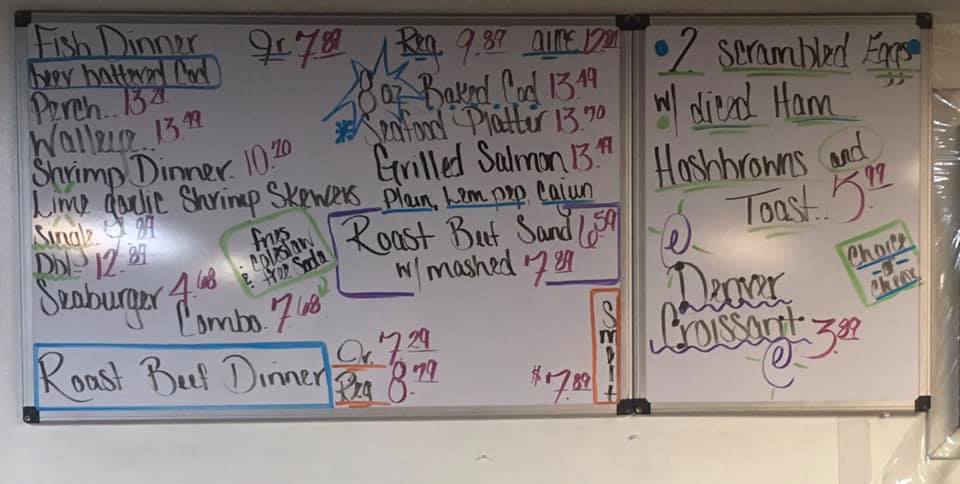 Fish Dinner Jr. 7.89 Reg. 9.89
beer battered Cod
Perch..
Walleye.. 13.49
Shrimp Dinner. 10.70
Lime garlic Shrimp Skewers
Single 9.89
Dbl- 12.89
Seaburger 4.68
Combo. 7.68
Fries
Coleslaw
free Soda
8 oz Baked Cod 13.49
Seafood Platter 13.70
Grilled Salmon 13.49
Plain, Lem pep, Cajun
Roast Beef Sand 6.59
w/ mashed 7.89
Roast Beef Dinner
Jr. 7.29
Reg 8.79
$7.89
Smelt
2 scrambled Eggs
w/ diced Ham
Hashbrowns and
Toast.. 5.99
Denver
Croissant 3.89
Choice
of
Cheese